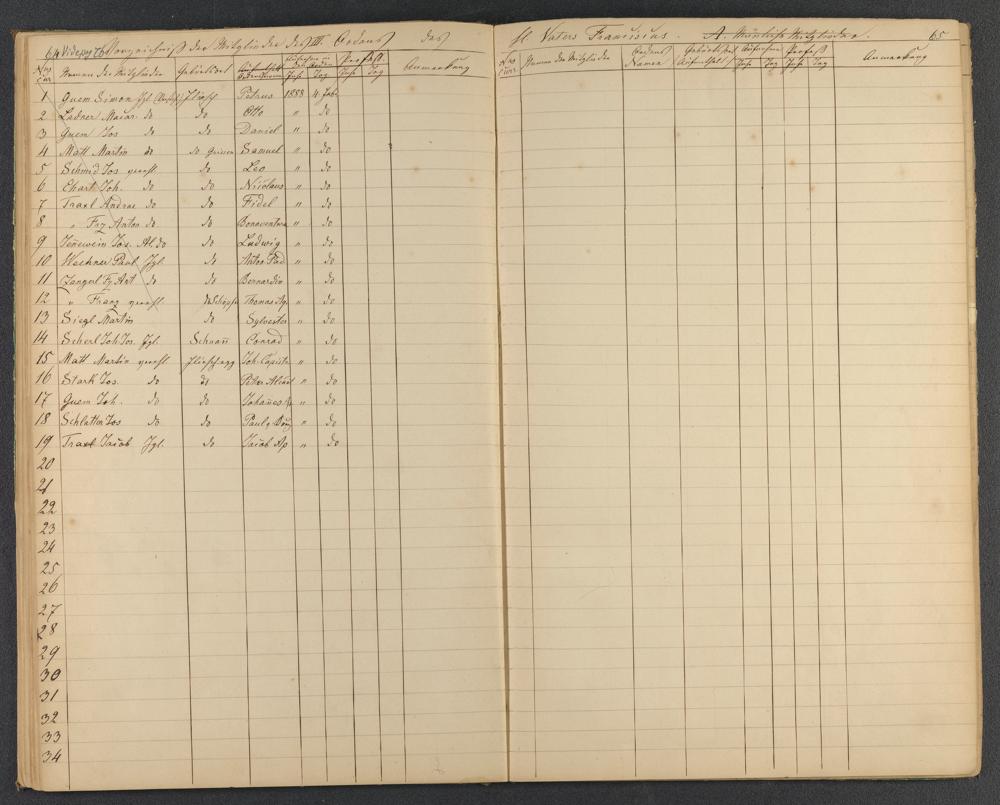 64 Vide pag 76 Verzeichniß der Mitglieder des III. Ordens des
hl. Vaters Franciscus. A. Männliche Mitglieder. 65
Nro Cur Namen der Mitglieder Geburtsort Ordensnamen Jahr Tag Profeß Jahr Tag Anmerkung
Nro Curr Namen der Mitglieder Ordens Namen Geburtsort Aufenthalt Aufnahme Jahr Tag Profeß Jahr Tag Anmerkung
1 Guem Simon Jgl. Flirsch Petrus 1888 4 Feb.
2 Ladner do do Otto " do
3 Guem Jos do do Daniel " do
4 Matt Martin do do Samuel " do
5 Schmid Jos do Leo " do
6 Ehart Joh. do do Nicolaus " do
7 Traxl Andrae do do Fidel " do
8 " Frz Anton do do Bonaventura " do
9 Jenewein Jos. Al. do do Ludwig " do
10 Wechner Paul Jgl do Anton Pad " do
11 Zangerl Fz Ant do do Bernardin " do
12 " Franz do Thomas Aq. " do
13 Siegl Martin do Sylvester " do
14 Scherl Joh Jos. Jgl. Schnann Conrad " do
15 Matt Martin Joh. Capistr " do
16 Stark Jos. do do Peter " do
17 Guem Joh. do do Johannes " do
18 Schlatter Jos do do Paul " do
19 Traxl Jacob Jgl. do Jacob Ap " do
20
21
22
23
24
25
26
27
28
29
30
31
32
33
34